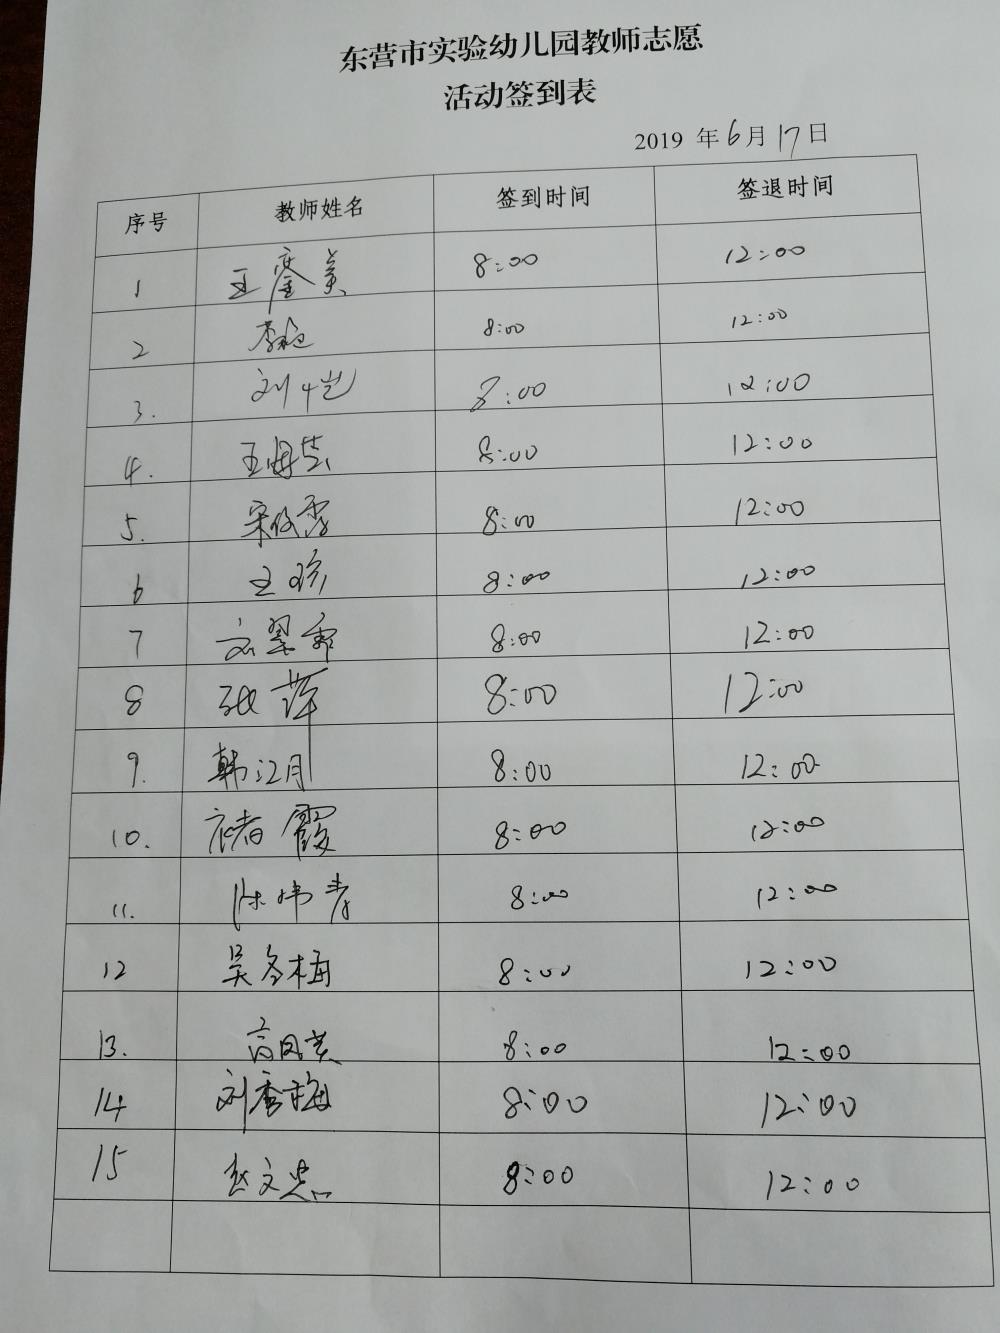 东营市实验幼儿园教师志愿
活动签到表
2019 年 6 月 17 日
序号 教师姓名 签到时间 签退时间
1 王 美 8:00 12:00
2 李 8:00 12:00
3. 刘 8:00 12:00
4. 王海芸 8:00 12:00
5. 宋俊秀 8:00 12:00
6 王 8:00 12:00
7 翠 8:00 12:00
8 张萍 8:00 12:00
9. 韩江月 8:00 12:00
10. 褚霞 8:00 12:00
11. 陈 8:00 12:00
12 吴冬梅 8:00 12:00
13. 高凤英 8:00 12:00
14 刘秀梅 8:00 12:00
15 赵文忠 8:00 12:00